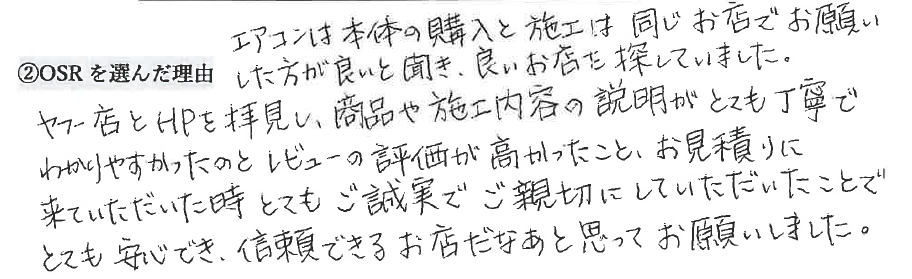 エアコンは本体の購入と施工は同じお店でお願い
②OSRを選んだ理由 した方が良いと聞き、良いお店を探していました。
ヤフー店とHPを拝見し、商品や施工内容の説明がとても丁寧で
わかりやすかったのとレビューの評価が高かったこと、お見積りに
来ていただいた時とてもご誠実でご親切にしていただいたことで
とても安心でき、信頼できるお店だなあと思ってお願いしました。